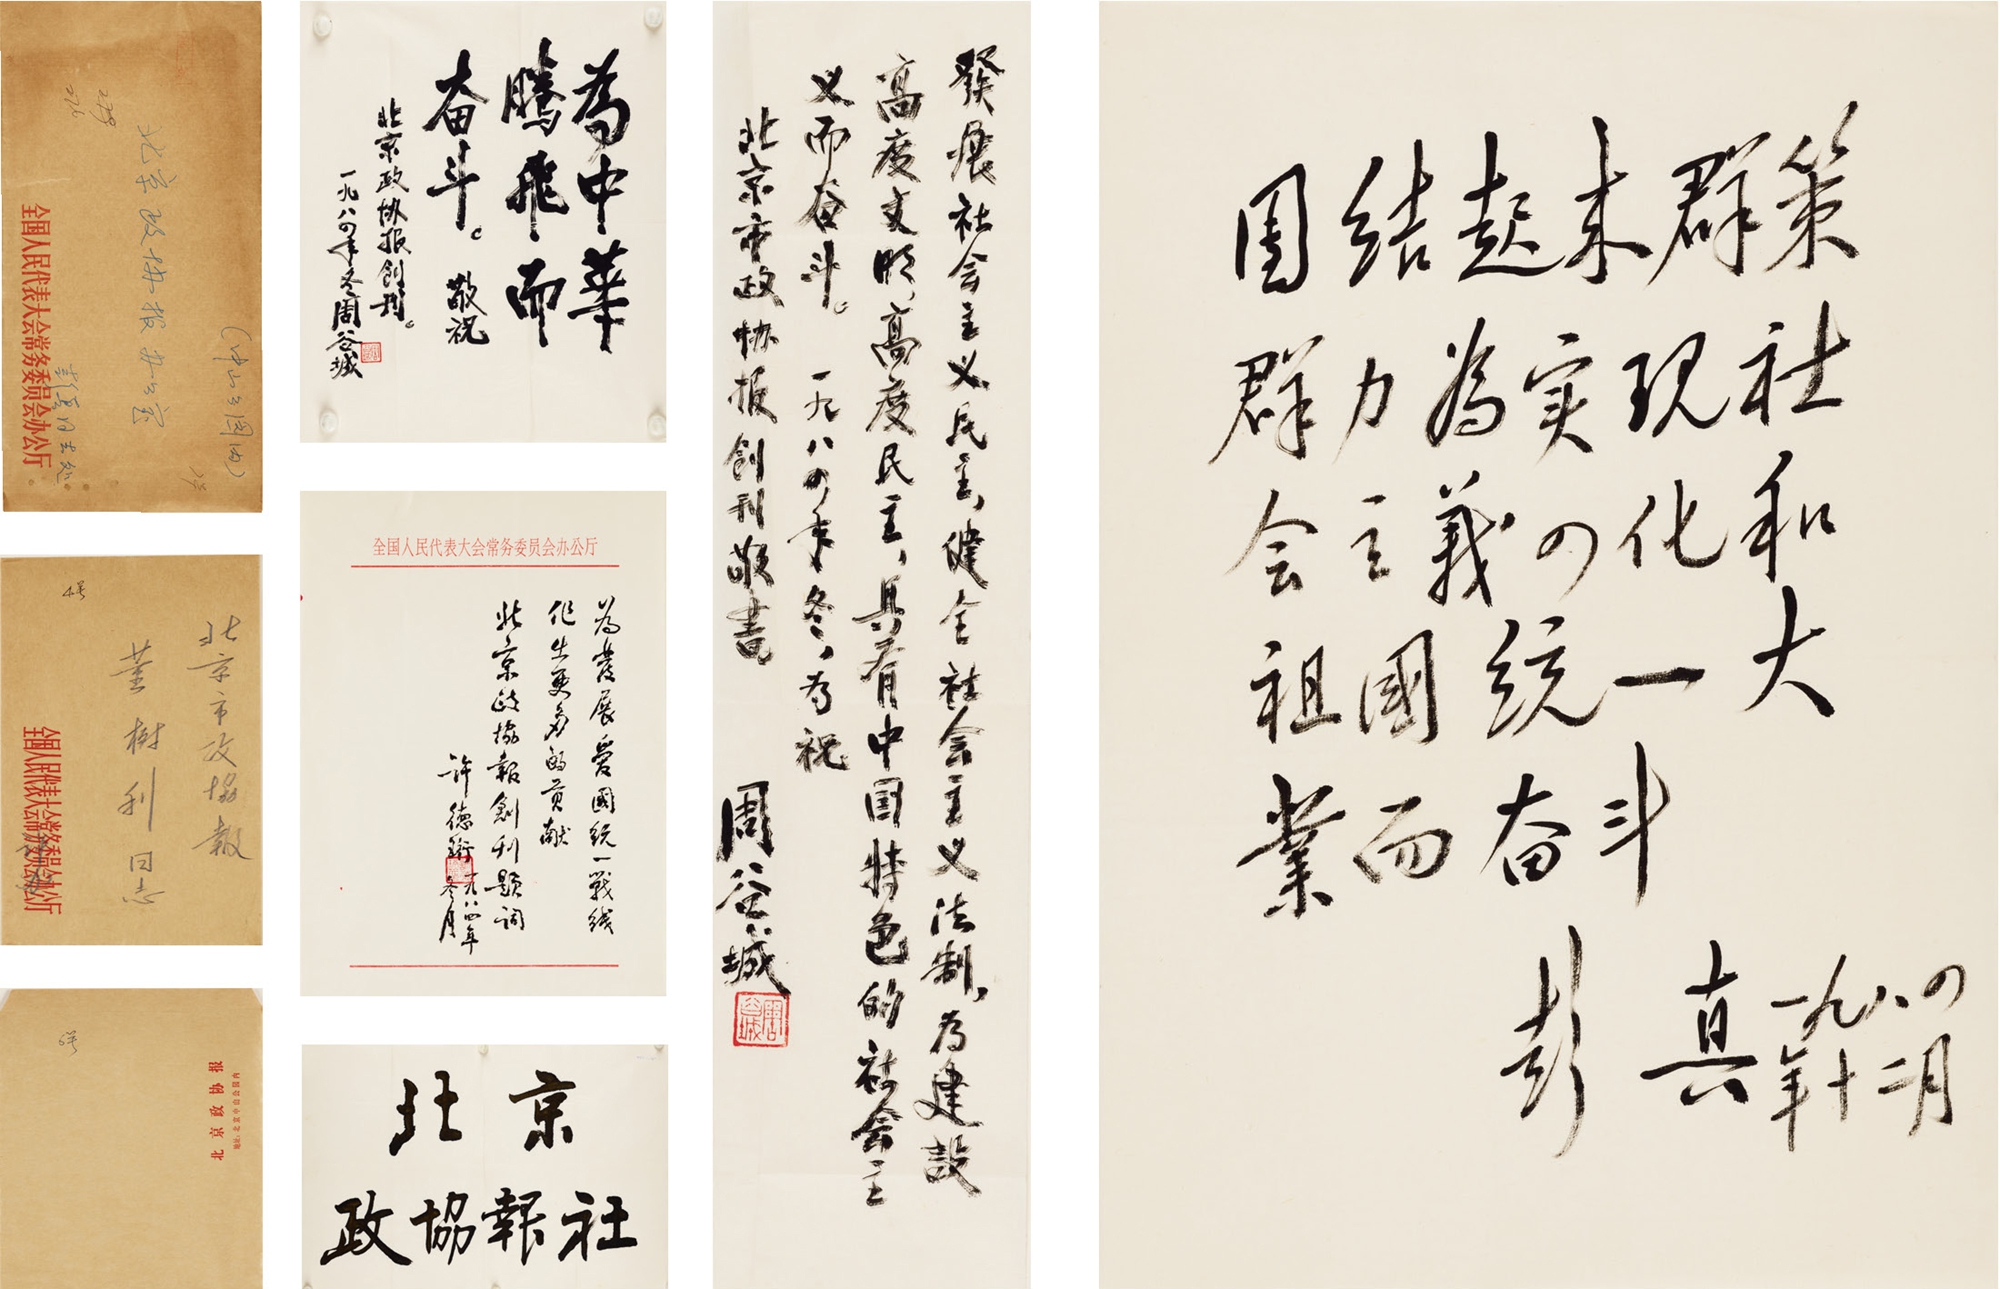 北京政协报办公室
(中山公园内)
彭真同志处
全国人民代表大会常务委员会办公厅
4号
北京市政協報
董樹利同志
全国人民代表大会常务委员会办公厅
6号
北京政协报
地址:北京中山公园内
為中華
腾飛而
奋斗。敬祝
北京政协报創刊。
一九八四年冬周谷城
全国人民代表大会常务委员会办公厅
為发展爱國统一戰线
作出更多的贡献
北京政协報創刊题词
许德珩
一九八四年
冬月
北京
政協報社
發展社会主义民主,健全社会主义法制,为建設
高度文明,高度民主,具有中国特色的社会主
义而奋斗。一九八四年冬,为祝
北京市政协报創刊敬書
周谷城
团结起来群策
群力為实现社
会主義四化和
祖國统一大
業而奋斗
彭真
一九八四
年十二月